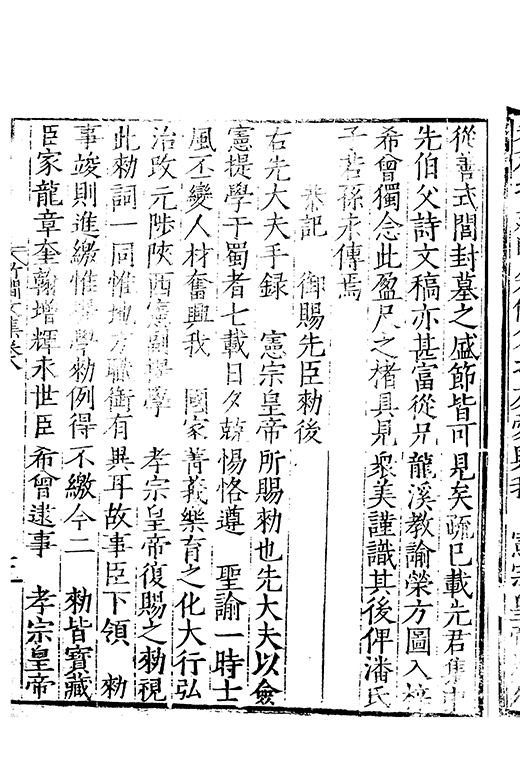 從善式閭封墓之盛節皆可見矣疏已載先君集中
先伯父詩文稿亦甚富從兄龍溪教諭榮方圖入梓
希曾獨念此盈尺之楮具見衆美謹識其後俾潘氏
子若孫永傳焉
恭記 御賜先臣勑後
右先大夫手錄 憲宗皇帝所賜勑也先大夫以僉
憲提學于蜀者七載日夕兢惕恪遵 聖諭一時士
風丕變人材奮興我 國家菁莪樂育之化大行弘
治改元陟陝西憲副學 孝宗皇帝復賜之勑視
此勑詞一同惟地方職銜有異耳故事臣下領 勑
事竣則進繳惟學勑例得不繳今二 勑皆寶藏
臣家龍章奎翰增輝永世臣希曾逮事 孝宗皇帝
竹澗文集卷八